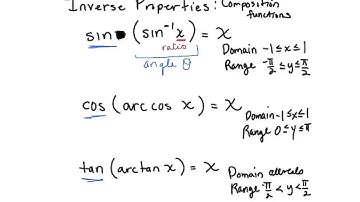 Inverse Properties: Composition functions
sin (sin⁻¹ x) = x
ratio
angle θ
Domain -1≤x≤1
Range -π/2 ≤y≤ π/2
cos (arccos x) = x
Domain -1≤x≤1
Range 0≤y≤π
tan (arctan x) = x
Domain all reals
Range -π/2 <y< π/2